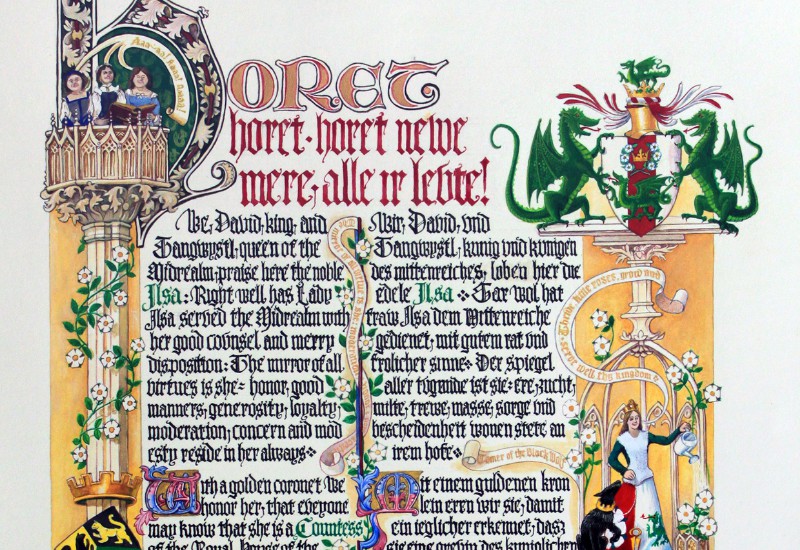 HORET
horet· horet newe
mere, alle ir levte!
We, David, king, and
Tangwystl, queen of the
Midrealm, praise here the noble
Ilsa: Right well has Lady
Ilsa served the Midrealm with
her good counsel and merry
disposition· The mirror of all
virtues is she· honor, good
manners, generosity, loyalty,
moderation, concern and mod
esty reside in her always·
With a golden coronet we
honor her, that everyone
may know that she is a Countess
of the Royal House of the
Wir, David, vnd
Tangwystl, kunig vnd kunigen
des mittenreiches, loben hier die
edele Ilsa· Gar wol hat
fraw Ilsa dem Mittenreiche
gedienet, mit gutem rat vnd
frolicher sinne· Der spiegel
aller tvgunde ist sie· ere, zucht,
milte, trewe, masse, sorge vnd
bescheidenheit wonen stete an
irem hofe·
Mit einem guldenen kron
lein eren wir sie, damit
ein ieglicher erkennet, dasz
sie eine grefin des kuniglichen
Tower of the Black Wolf